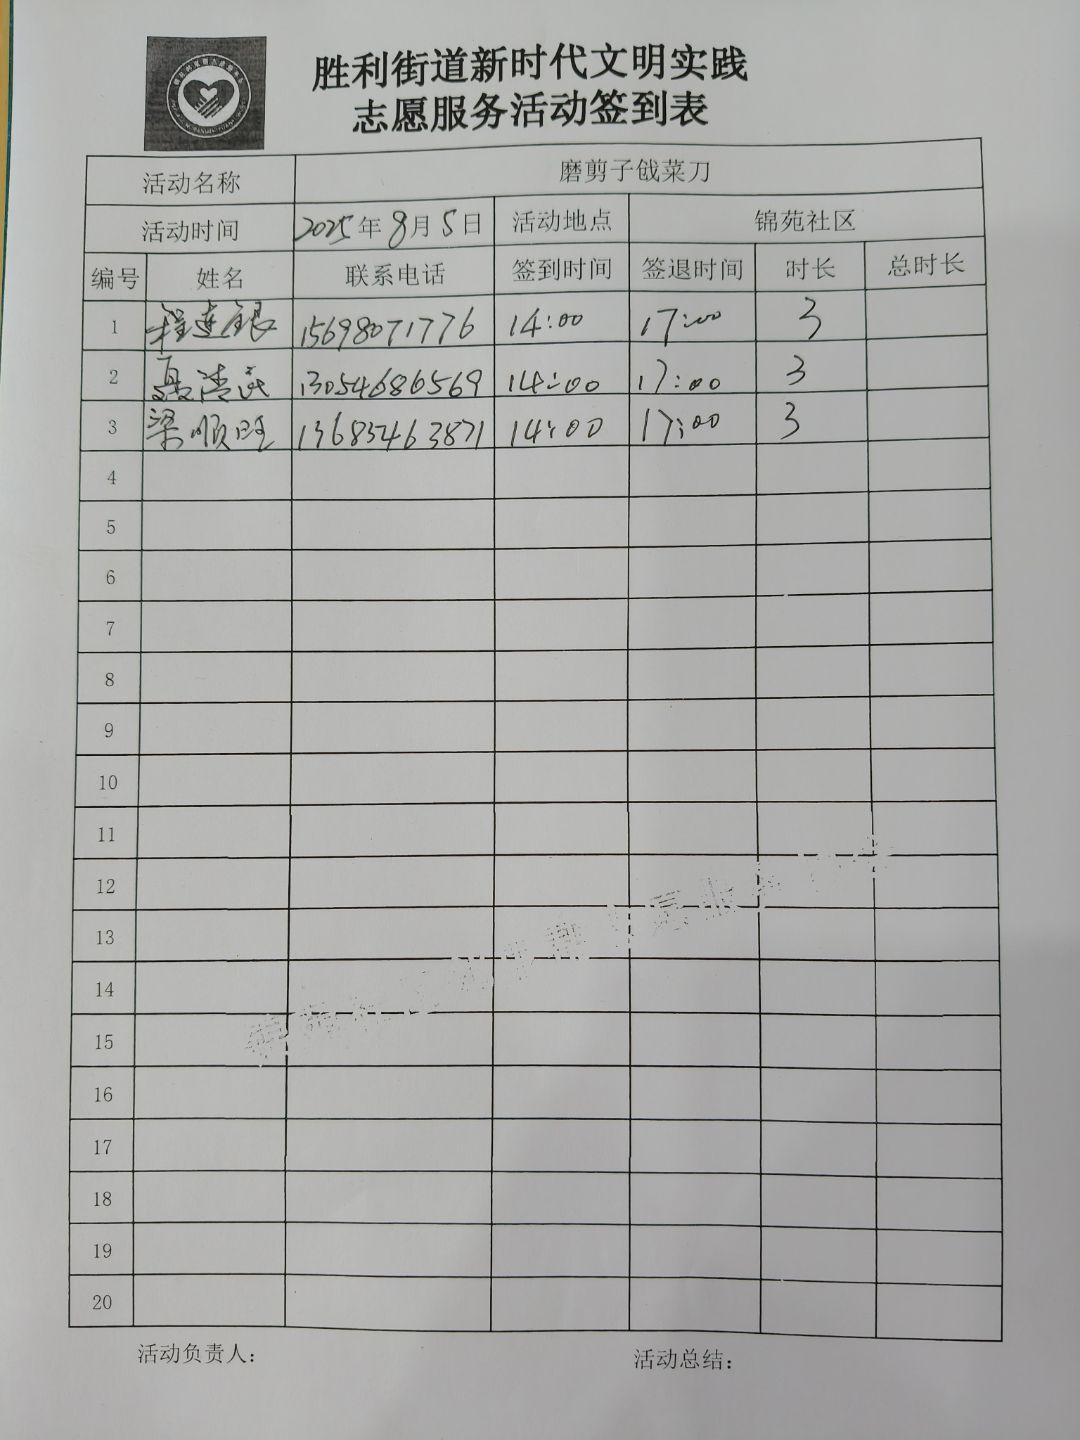 胜利街道新时代文明实践
志愿服务活动签到表
活动名称 磨剪子戗菜刀
活动时间 2025年8月5日 活动地点 锦苑社区
编号 姓名 联系电话 签到时间 签退时间 时长 总时长
1 程连银 15698071776 14:00 17:00 3
2 聂清民 13054686569 14:00 17:00 3
3 梁顺旺 13685463871 14:00 17:00 3
4
5
6
7
8
9
10
11
12
13
14
15
16
17
18
19
20
活动负责人: 活动总结: